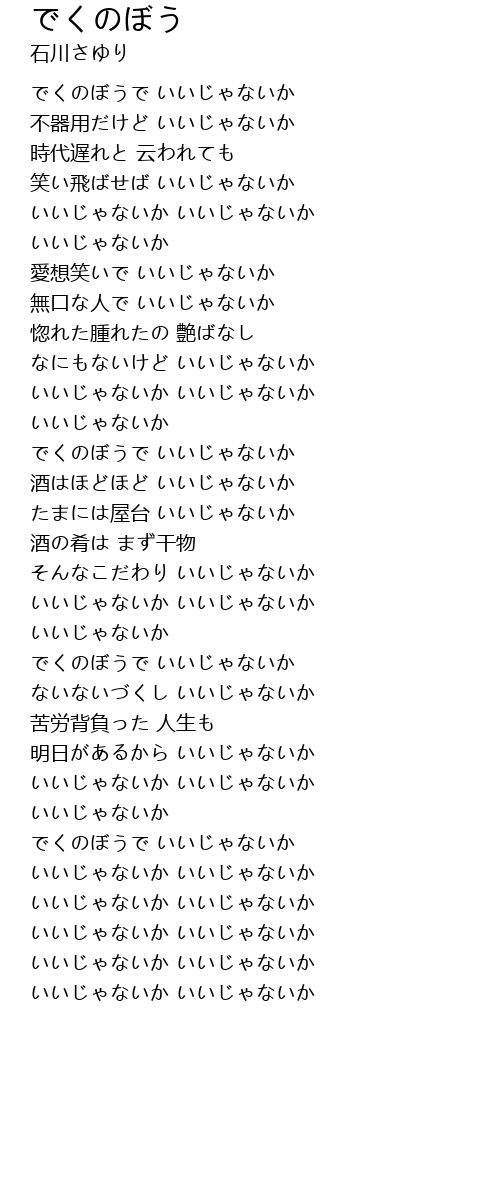 でくのぼう
石川さゆり
でくのぼうで いいじゃないか
不器用だけど いいじゃないか
時代遅れと 云われても
笑い飛ばせば いいじゃないか
いいじゃないか いいじゃないか
いいじゃないか
愛想笑いで いいじゃないか
無口な人で いいじゃないか
惚れた腫れたの 艶ばなし
なにもないけど いいじゃないか
いいじゃないか いいじゃないか
いいじゃないか
でくのぼうで いいじゃないか
酒はほどほど いいじゃないか
たまには屋台 いいじゃないか
酒の肴は まず干物
そんなこだわり いいじゃないか
いいじゃないか いいじゃないか
いいじゃないか
でくのぼうで いいじゃないか
ないないづくし いいじゃないか
苦労背負った 人生も
明日があるから いいじゃないか
いいじゃないか いいじゃないか
いいじゃないか
でくのぼうで いいじゃないか
いいじゃないか いいじゃないか
いいじゃないか いいじゃないか
いいじゃないか いいじゃないか
いいじゃないか いいじゃないか
いいじゃないか いいじゃないか